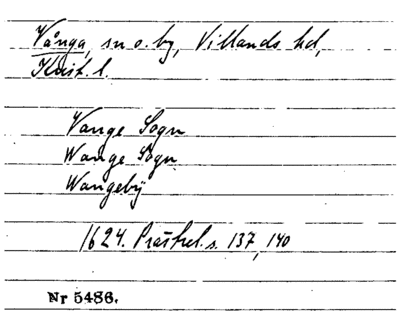 Vånga, sn o. by, Villands hd,
Krist. l.
Vange Sogn
Wange Sogn
Wangebÿ
1624. Prästrel. s. 137, 140
Nr 5486.